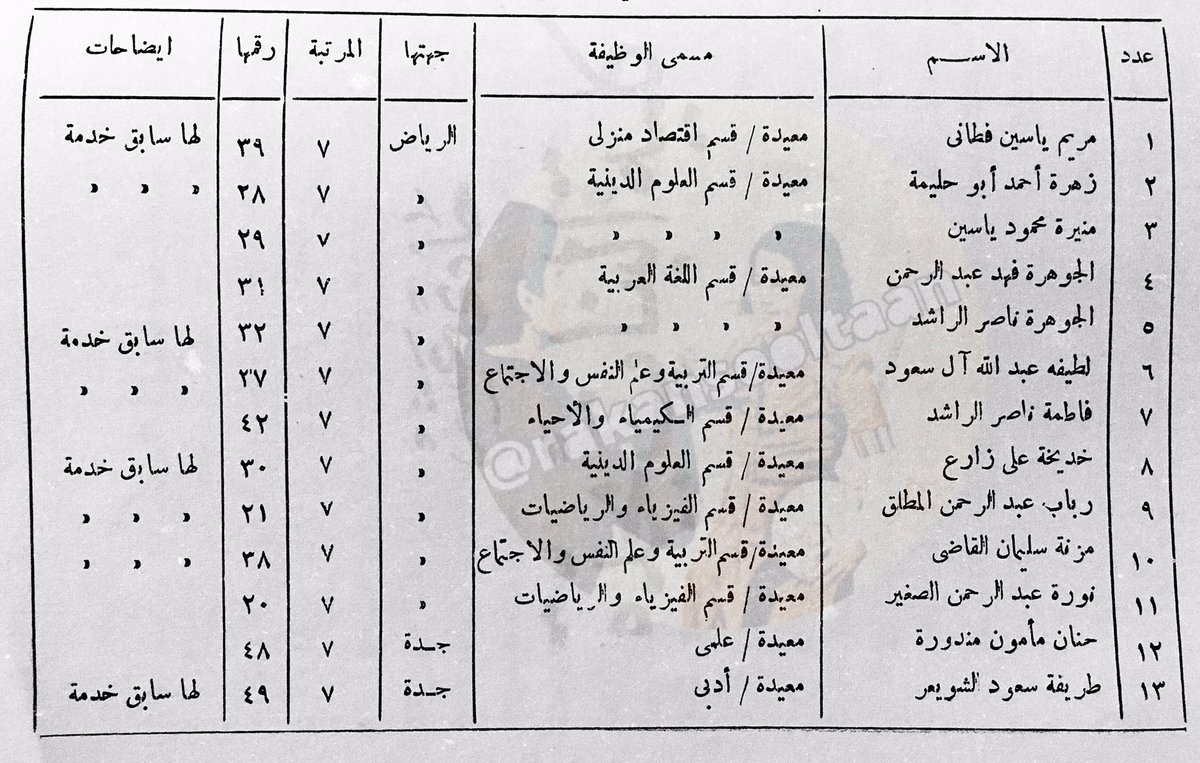 عدد الاسم مسمى الوظيفة جهتها المرتبة رقمها ايضاحات
١ مريم ياسين فطانى معيدة / قسم اقتصاد منزلى الرياض ٧ ٣٩ لها سابق خدمة
٢ زهرة أحمد أبو حليمة معيدة / قسم العلوم الدينية » ٧ ٢٨ » » »
٣ منيرة محمود ياسين » » » » » ٧ ٢٩
٤ الجوهرة فهد عبد الرحمن معيدة / قسم اللغة العربية » ٧ ٣١
٥ الجوهرة ناصر الراشد » » » » » ٧ ٣٢ لها سابق خدمة
٦ لطيفه عبد الله آل سعود معيدة/قسم التربية وعلم النفس والاجتماع » ٧ ٢٧ » » »
٧ فاطمة ناصر الراشد معيدة / قسم الكيمياء والأحياء » ٧ ٤٢
٨ خديخة على زارع معيدة / قسم العلوم الدينية » ٧ ٣٠ لها سابق خدمة
٩ رباب عبد الرحمن المطلق معيدة / قسم الفيزياء والرياضيات » ٧ ٢١ » » »
١٠ مزنة سليمان القاضى معيدة/قسم التربية وعلم النفس والاجتماع » ٧ ٣٨ » » »
١١ نورة عبد الرحمن الصغير معيدة / قسم الفيزياء والرياضيات » ٧ ٢٠
١٢ حنان مأمون مندورة معيدة / علمى جدة ٧ ٤٨
١٣ طريفة سعود الشويعر معيدة / أدبى جدة ٧ ٤٩ لها سابق خدمة